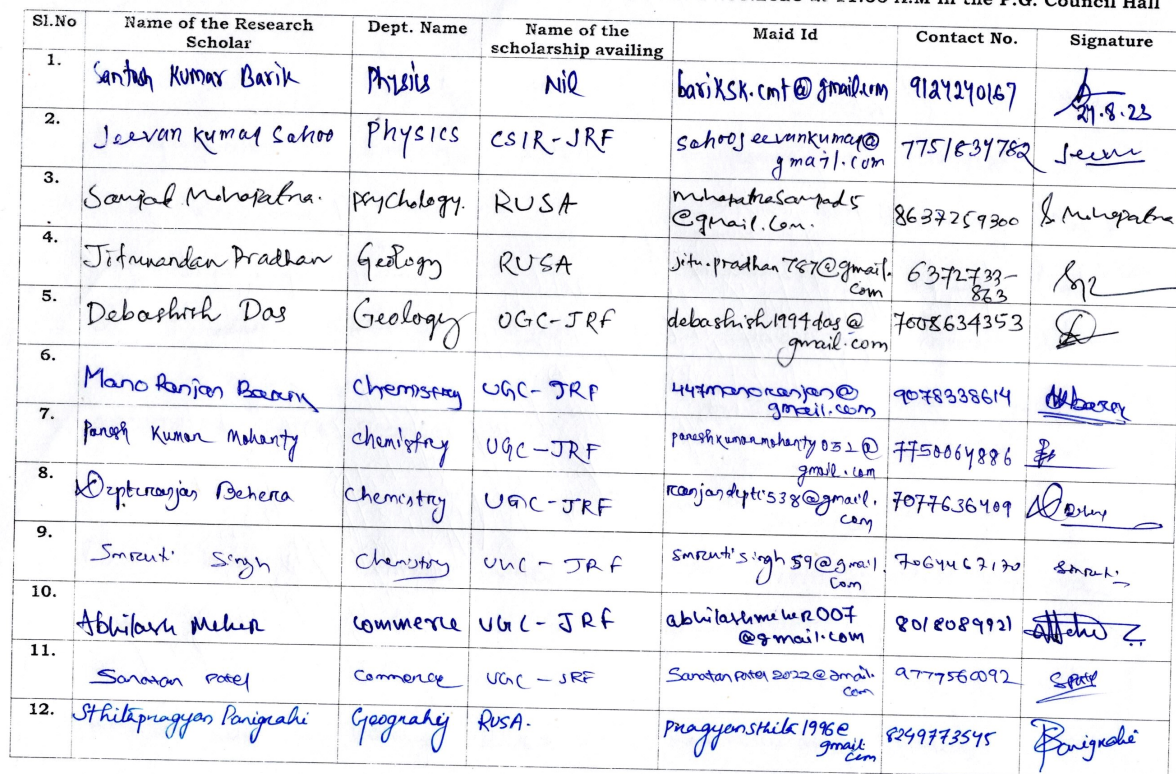 at 11:30 A.M in the P.G. Council Hall
Sl.No Name of the Research Scholar Dept. Name Name of the scholarship availing Maid Id Contact No. Signature
1. Santosh Kumar Barik Physics Nil bariksk.cmt@gmail.com 9124240167 27.8.23
2. Jeevan Kumar Sahoo Physics CSIR-JRF sahoojeevankumar@gmail.com 7751834782 Jeevan
3. Sampad Mohapatra. Psychology. RUSA mohapatrasampad5@gmail.com. 8637259300 S. Mohapatra
4. Jitunandan Pradhan Geology RUSA jitu.pradhan787@gmail.com 6372733-863
5. Debashish Das Geology UGC-JRF debashish1994das@gmail.com 7008634353
6. Mano Ranjan Barik Chemistry UGC-JRF 447manoranjan@gmail.com 9078338614
7. Paresh Kumar Mohanty Chemistry UGC-JRF pareshkumarmohanty052@gmail.com 7750064886
8. Diptiranjan Behera Chemistry UGC-JRF ranjandipti538@gmail.com 7077636409
9. Smruti Singh Chemistry UGC-JRF smrutisingh59@gmail.com 7064467170 Smruti
10. Abhilash Meher Commerce UGC-JRF abhilashmeher007@gmail.com 8018089921
11. Sanatan Patel Commerce UGC-JRF Sanatanpatel2022@gmail.com 9777560092 SPatel
12. Sthitapragyan Panigrahi Geography RUSA. pragyansthita1996@gmail.com 8249773545 Panigrahi